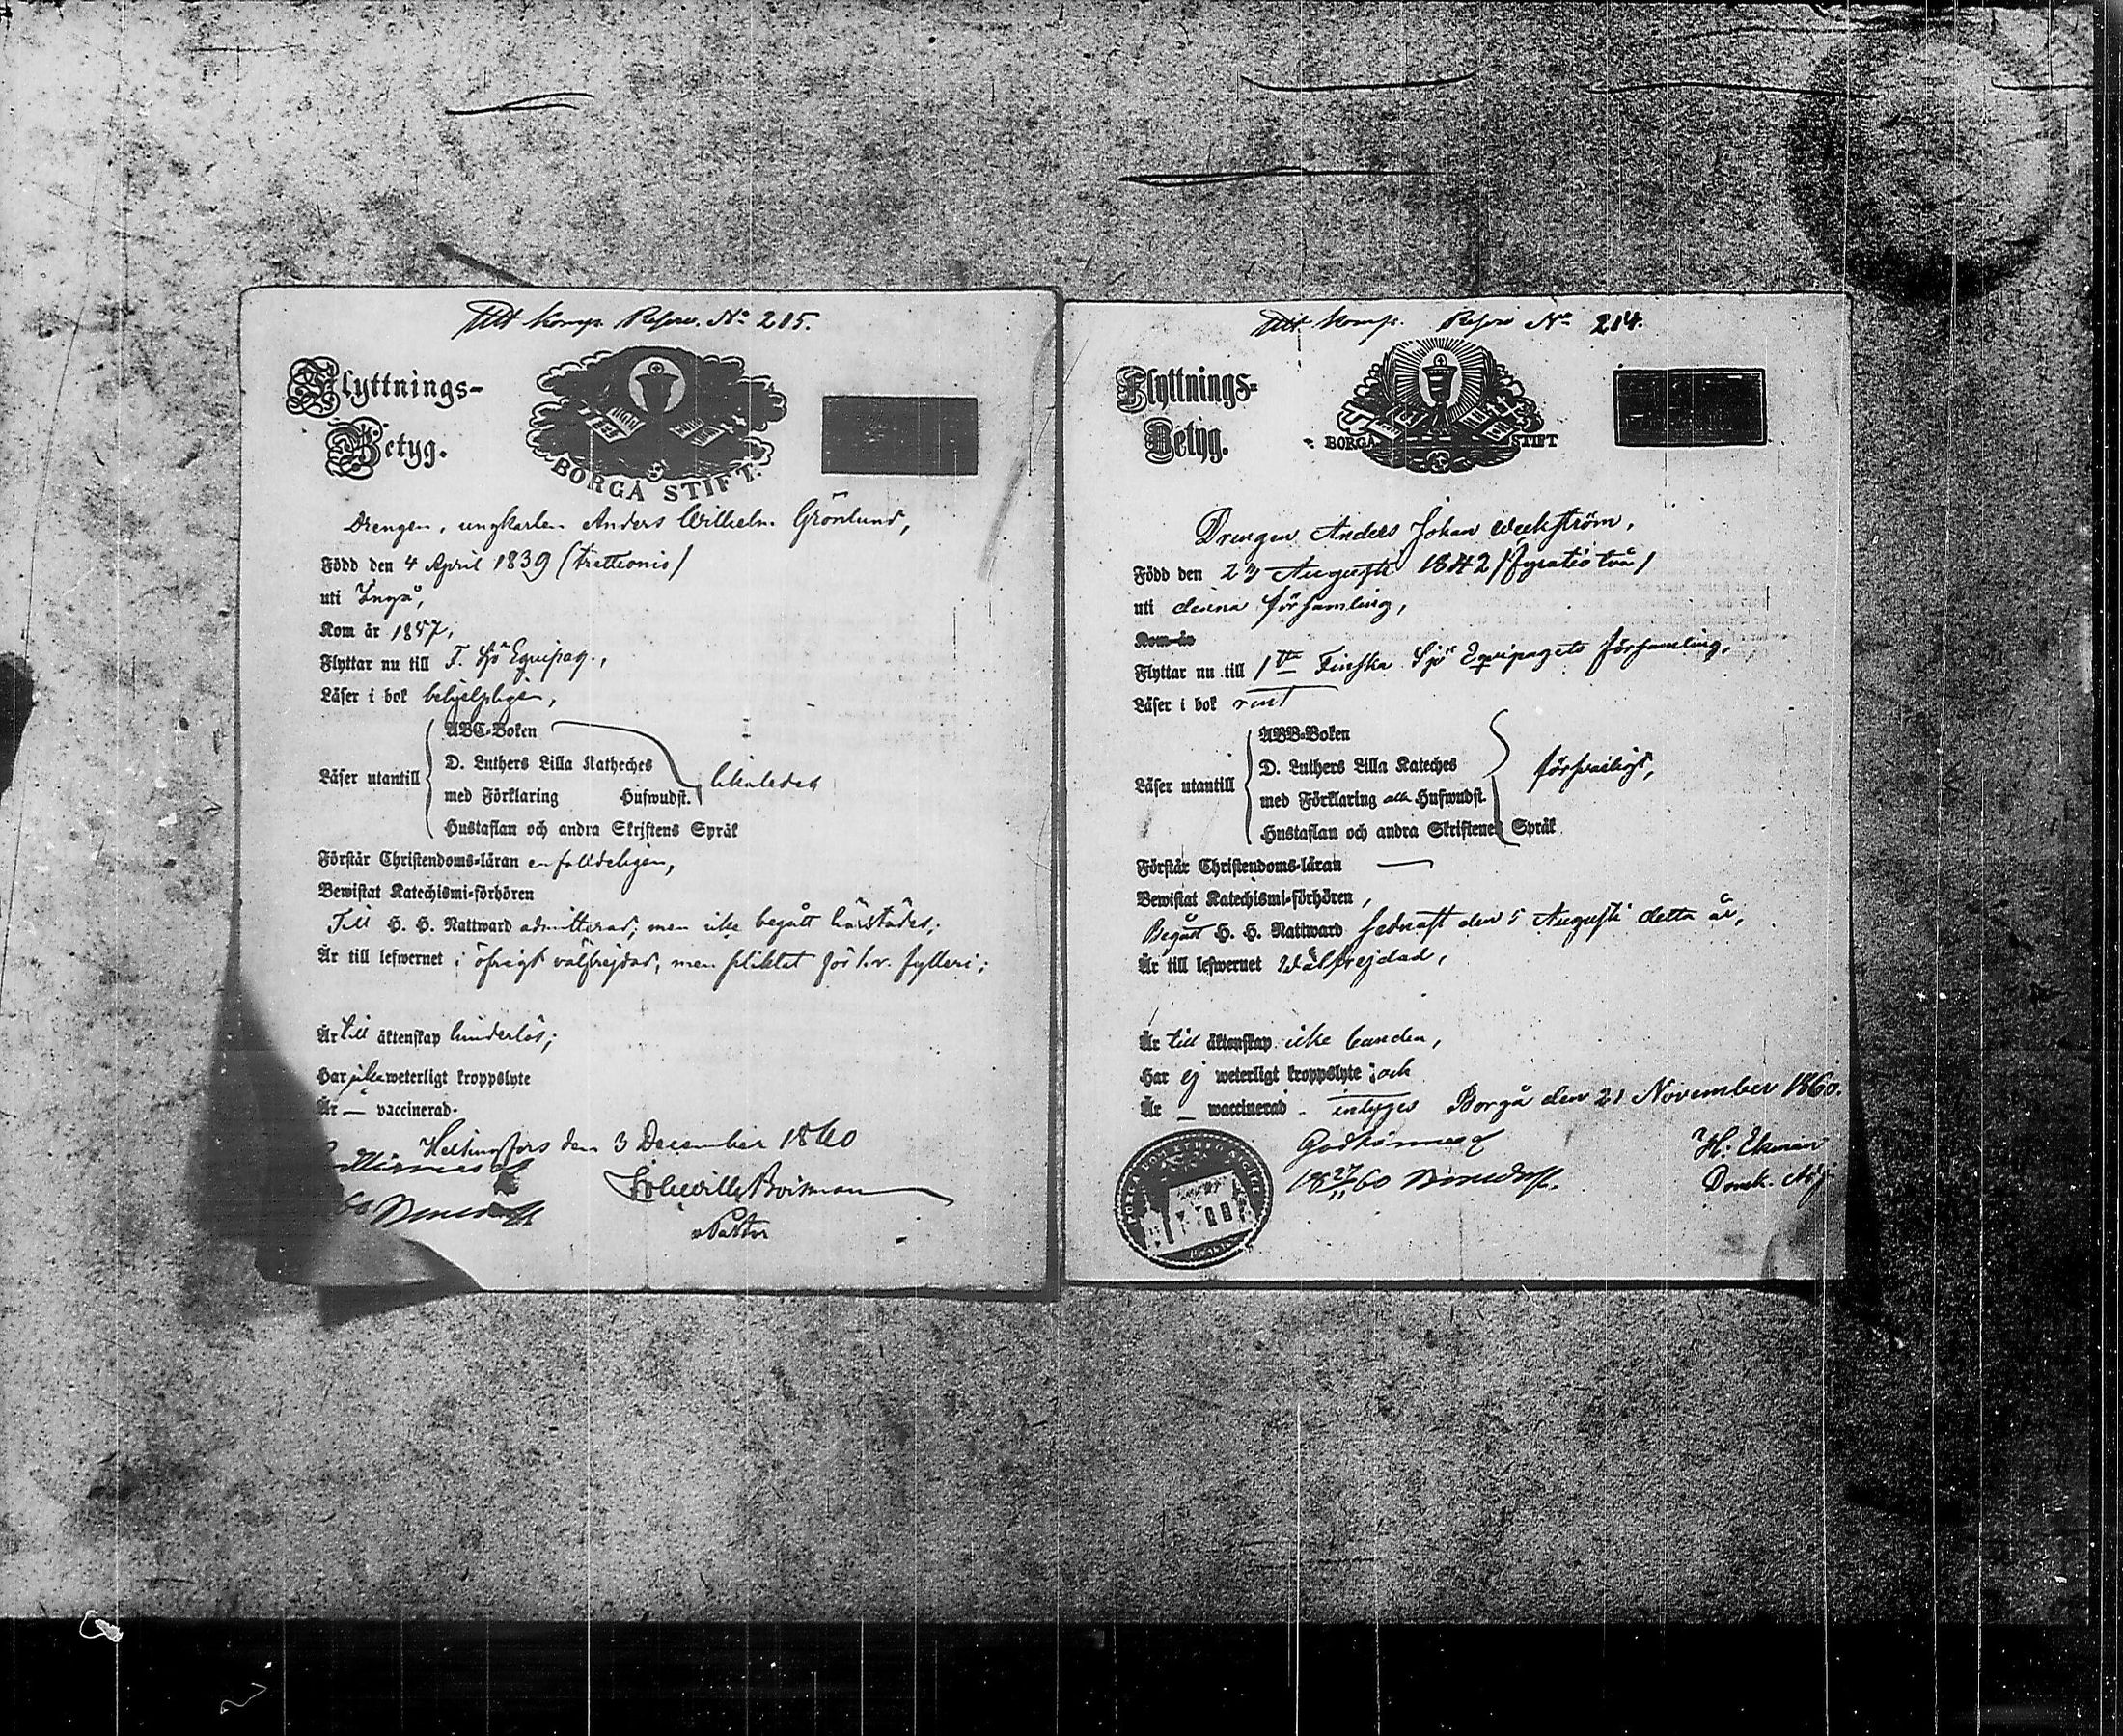 Komp. Reserv. No 215.
Flyttnings-
Betyg.
BORGÅ STIFT.
Drengen, ungkarlen Anders Wilhelm Grönlund,
Född den 4 April 1839 (trettionio)
uti Ingå,
Kom år 1857,
Flyttar nu till F. Sjö Equipag.,
Läser i bok behjelpligen,
ABC-Boken
D. Luthers Lilla Katheches
Läser utantill likaledes
med Förklaring Hufwudst.
Hustaflan och andra Skriftens Språk
Förstår Christendoms-läran enfalldeligen,
Bewistat Katechismi-förhören
Till H. H. Nattward admitterad, men icke begått härstädes;
Är till lefwernet i öfrigt välfrejdad, men pliktat för fylleri;
Är till äktenskap hinderlös;
Har icke weterligt kroppslyte
Är — vaccinerad.
Helsingfors den 3 December 1860
Boisman
Pastor
Komp. Reserv No 214.
Flyttnings-
Betyg.
BORGÅ STIFT
Drengen Anders Johan Weckström,
Född den 23 Augusti 1842 /fyratiotvå/
uti denna församling,
Kom år
Flyttar nu till 1sta Finska Sjö Equipagets församling,
Läser i bok rent
ABB-Boken
D. Luthers Lilla Kateches
Läser utantill försvarligt,
med Förklaring alla Hufwudst.
Hustaflan och andra Skriftenes Språk
Förstår Christendoms-läran —
Bewistat Katechismi-förhören,
Begått H. H. Nattward sednast den 5 Augusti detta år,
Är till lefwernet wälfrejdad,
Är till äktenskap icke bunden,
Har ej weterligt kroppslyte; och
Är — waccinerad - intyges Borgå den 21 November 1860.
Godkännes H: Ekman
18 27/11 60 Domk. Adj.